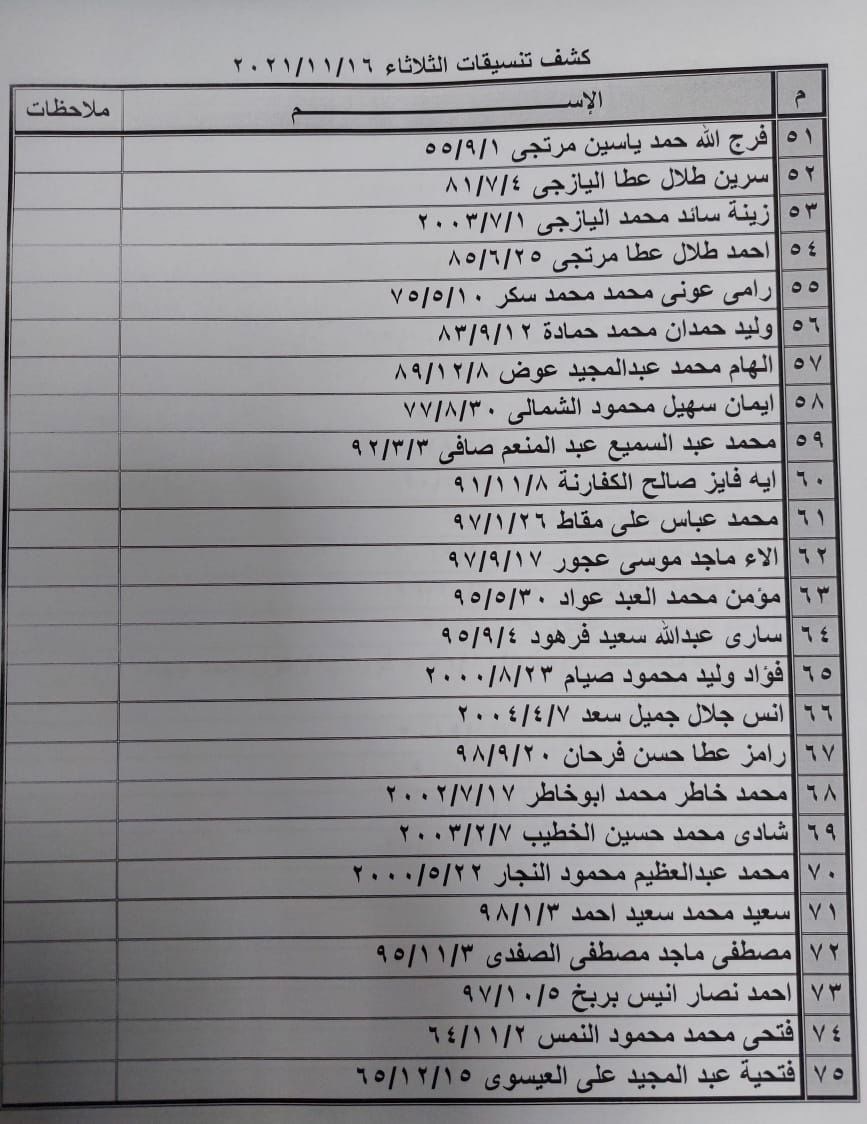 كشف تنسيقات الثلاثاء ٢٠٢١/١١/١٦
م الإســـــــم ملاحظات
٥١ فرج الله حمد ياسين مرتجى ٥٥/٩/١
٥٢ سرين طلال عطا اليازجى ٨١/٧/٤
٥٣ زينة سائد محمد اليازجى ٢٠٠٣/٧/١
٥٤ احمد طلال عطا مرتجى ٨٥/٦/٢٥
٥٥ رامى عونى محمد محمد سكر ٧٥/٥/١٠
٥٦ وليد حمدان محمد حمادة ٨٣/٩/١٢
٥٧ الهام محمد عبدالمجيد عوض ٨٩/١٢/٨
٥٨ ايمان سهيل محمود الشمالى ٧٧/٨/٣٠
٥٩ محمد عبد السميع عبد المنعم صافى ٩٢/٣/٣
٦٠ ايه فايز صالح الكفارنة ٩١/١١/٨
٦١ محمد عباس على مقاط ٩٧/١/٢٦
٦٢ الاء ماجد موسى عجور ٩٧/٩/١٧
٦٣ مؤمن محمد العبد عواد ٩٥/٥/٣٠
٦٤ سارى عبدالله سعيد فرهود ٩٥/٩/٤
٦٥ فؤاد وليد محمود صيام ٢٠٠٠/٨/٢٣
٦٦ انس جلال جميل سعد ٢٠٠٤/٤/٧
٦٧ رامز عطا حسن فرحان ٩٨/٩/٢٠
٦٨ محمد خاطر محمد ابوخاطر ٢٠٠٢/٧/١٧
٦٩ شادى محمد حسين الخطيب ٢٠٠٣/٢/٧
٧٠ محمد عبدالعظيم محمود النجار ٢٠٠٠/٥/٢٢
٧١ سعيد محمد سعيد احمد ٩٨/١/٣
٧٢ مصطفى ماجد مصطفى الصفدى ٩٥/١١/٣
٧٣ احمد نصار انيس بربخ ٩٧/١٠/٥
٧٤ فتحى محمد محمود النمس ٦٤/١١/٢
٧٥ فتحية عبد المجيد على العيسوى ٦٥/١٢/١٥